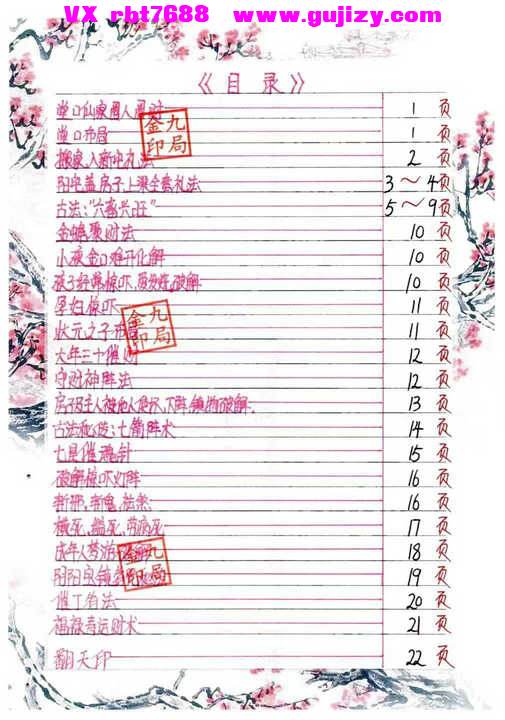 VX rbt7688 www.gujizy.com
《目录》
堂口仙家 人 财 1页
堂口布局 1页
搬家,入新宅礼法 2页
阳宅盖房子上梁全套礼法 3～4页
古法:"六畜兴旺" 5～9页
金蟾聚财法 10页
小孩金口难开化解 10页
孩子经常惊吓, 破解 10页
孕妇惊吓 11页
状元之子布局 11页
大年三十催财 12页
守财神阵法 12页
房子及主人被他人使坏,下阵镇物破解. 13页
古法秘 :七箭阵术 14页
七星催 针 15页
破解惊吓灯阵 16页
斩邪,斩鬼, 16页
横死, 死,劳病死 17页
成年人 18页
阴阳宅镇 19页
催丁 法 20页
福禄 运财术 21页
翻天印 22页
九局金印
九局金印
九局金印